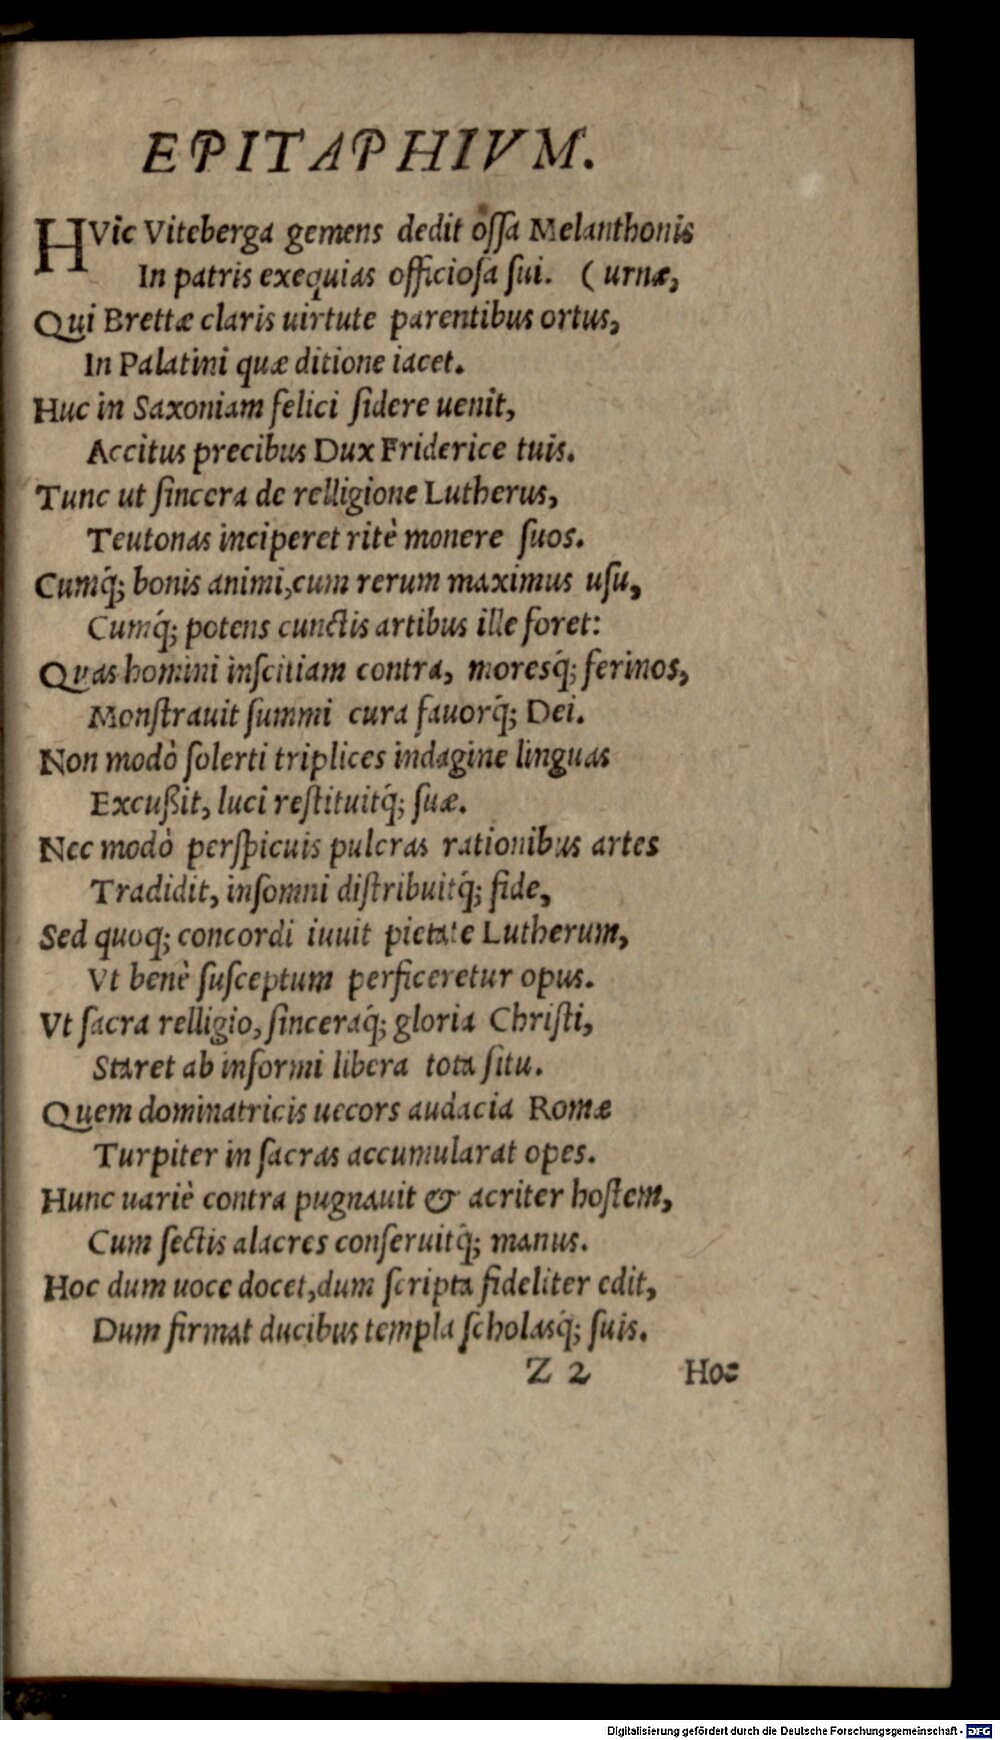 EPITAPHIVM.
HVic Viteberga gemens dedit ossa Melanthonis
In patris exequias officiosa sui. (urnæ,
Qui Brettæ claris uirtute parentibus ortus,
In Palatini quæ ditione iacet.
Huc in Saxoniam felici sidere uenit,
Accitus precibus Dux Friderice tuis.
Tunc ut sincera de relligione Lutherus,
Teutonas inciperet ritè monere suos.
Cumq́; bonis animi,cum rerum maximus usu,
Cumq́; potens cunctis artibus ille foret:
Quas homini inscitiam contra, moresq́; ferinos,
Monstrauit summi cura fauorq́; Dei.
Non modò solerti triplices indagine linguas
Excußit, luci restituitq́; suæ.
Nec modò perspicuis pulcras rationibus artes
Tradidit, insomni distribuitq́; fide,
Sed quoq; concordi iuuit pietate Lutherum,
Vt benè susceptum perficeretur opus.
Vt sacra relligio, sinceraq́; gloria Christi,
Staret ab informi libera tota situ.
Quem dominatricis uecors audacia Romæ
Turpiter in sacras accumularat opes.
Hunc uariè contra pugnauit & acriter hostem,
Cum sectis alacres conseruitq́; manus.
Hoc dum uoce docet,dum scripta fideliter edit,
Dum firmat ducibus templa scholasq́; suis.
Z 2 Hoc
Digitalisierung gefördert durch die Deutsche Forschungsgemeinschaft - DFG